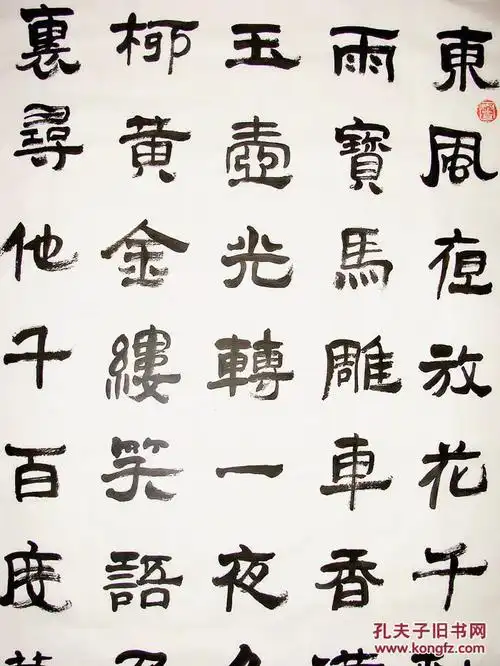 東風夜放花千
雨寶馬雕車香
玉壺光轉一夜
柳黃金縷笑語
裏尋他千百度
孔夫子旧书网
www.kongfz.com